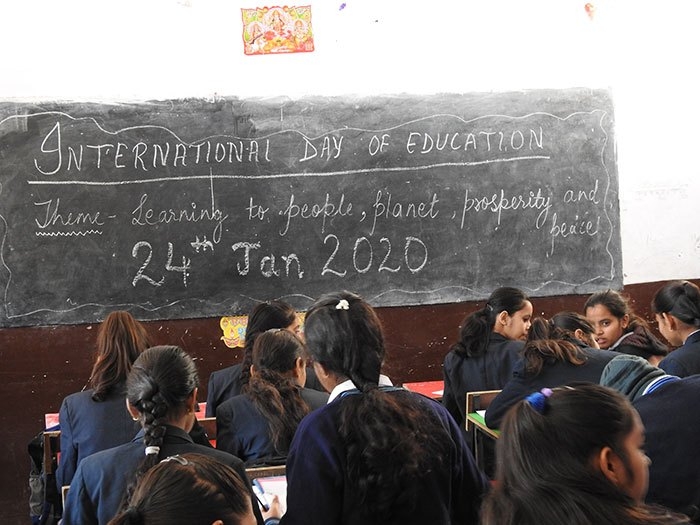 INTERNATIONAL DAY OF EDUCATION
Theme - Learning to people, planet, prosperity and
peace
24th Jan 2020